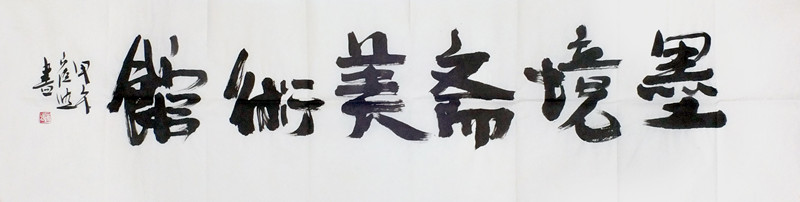 墨境斋美術館
甲午
書